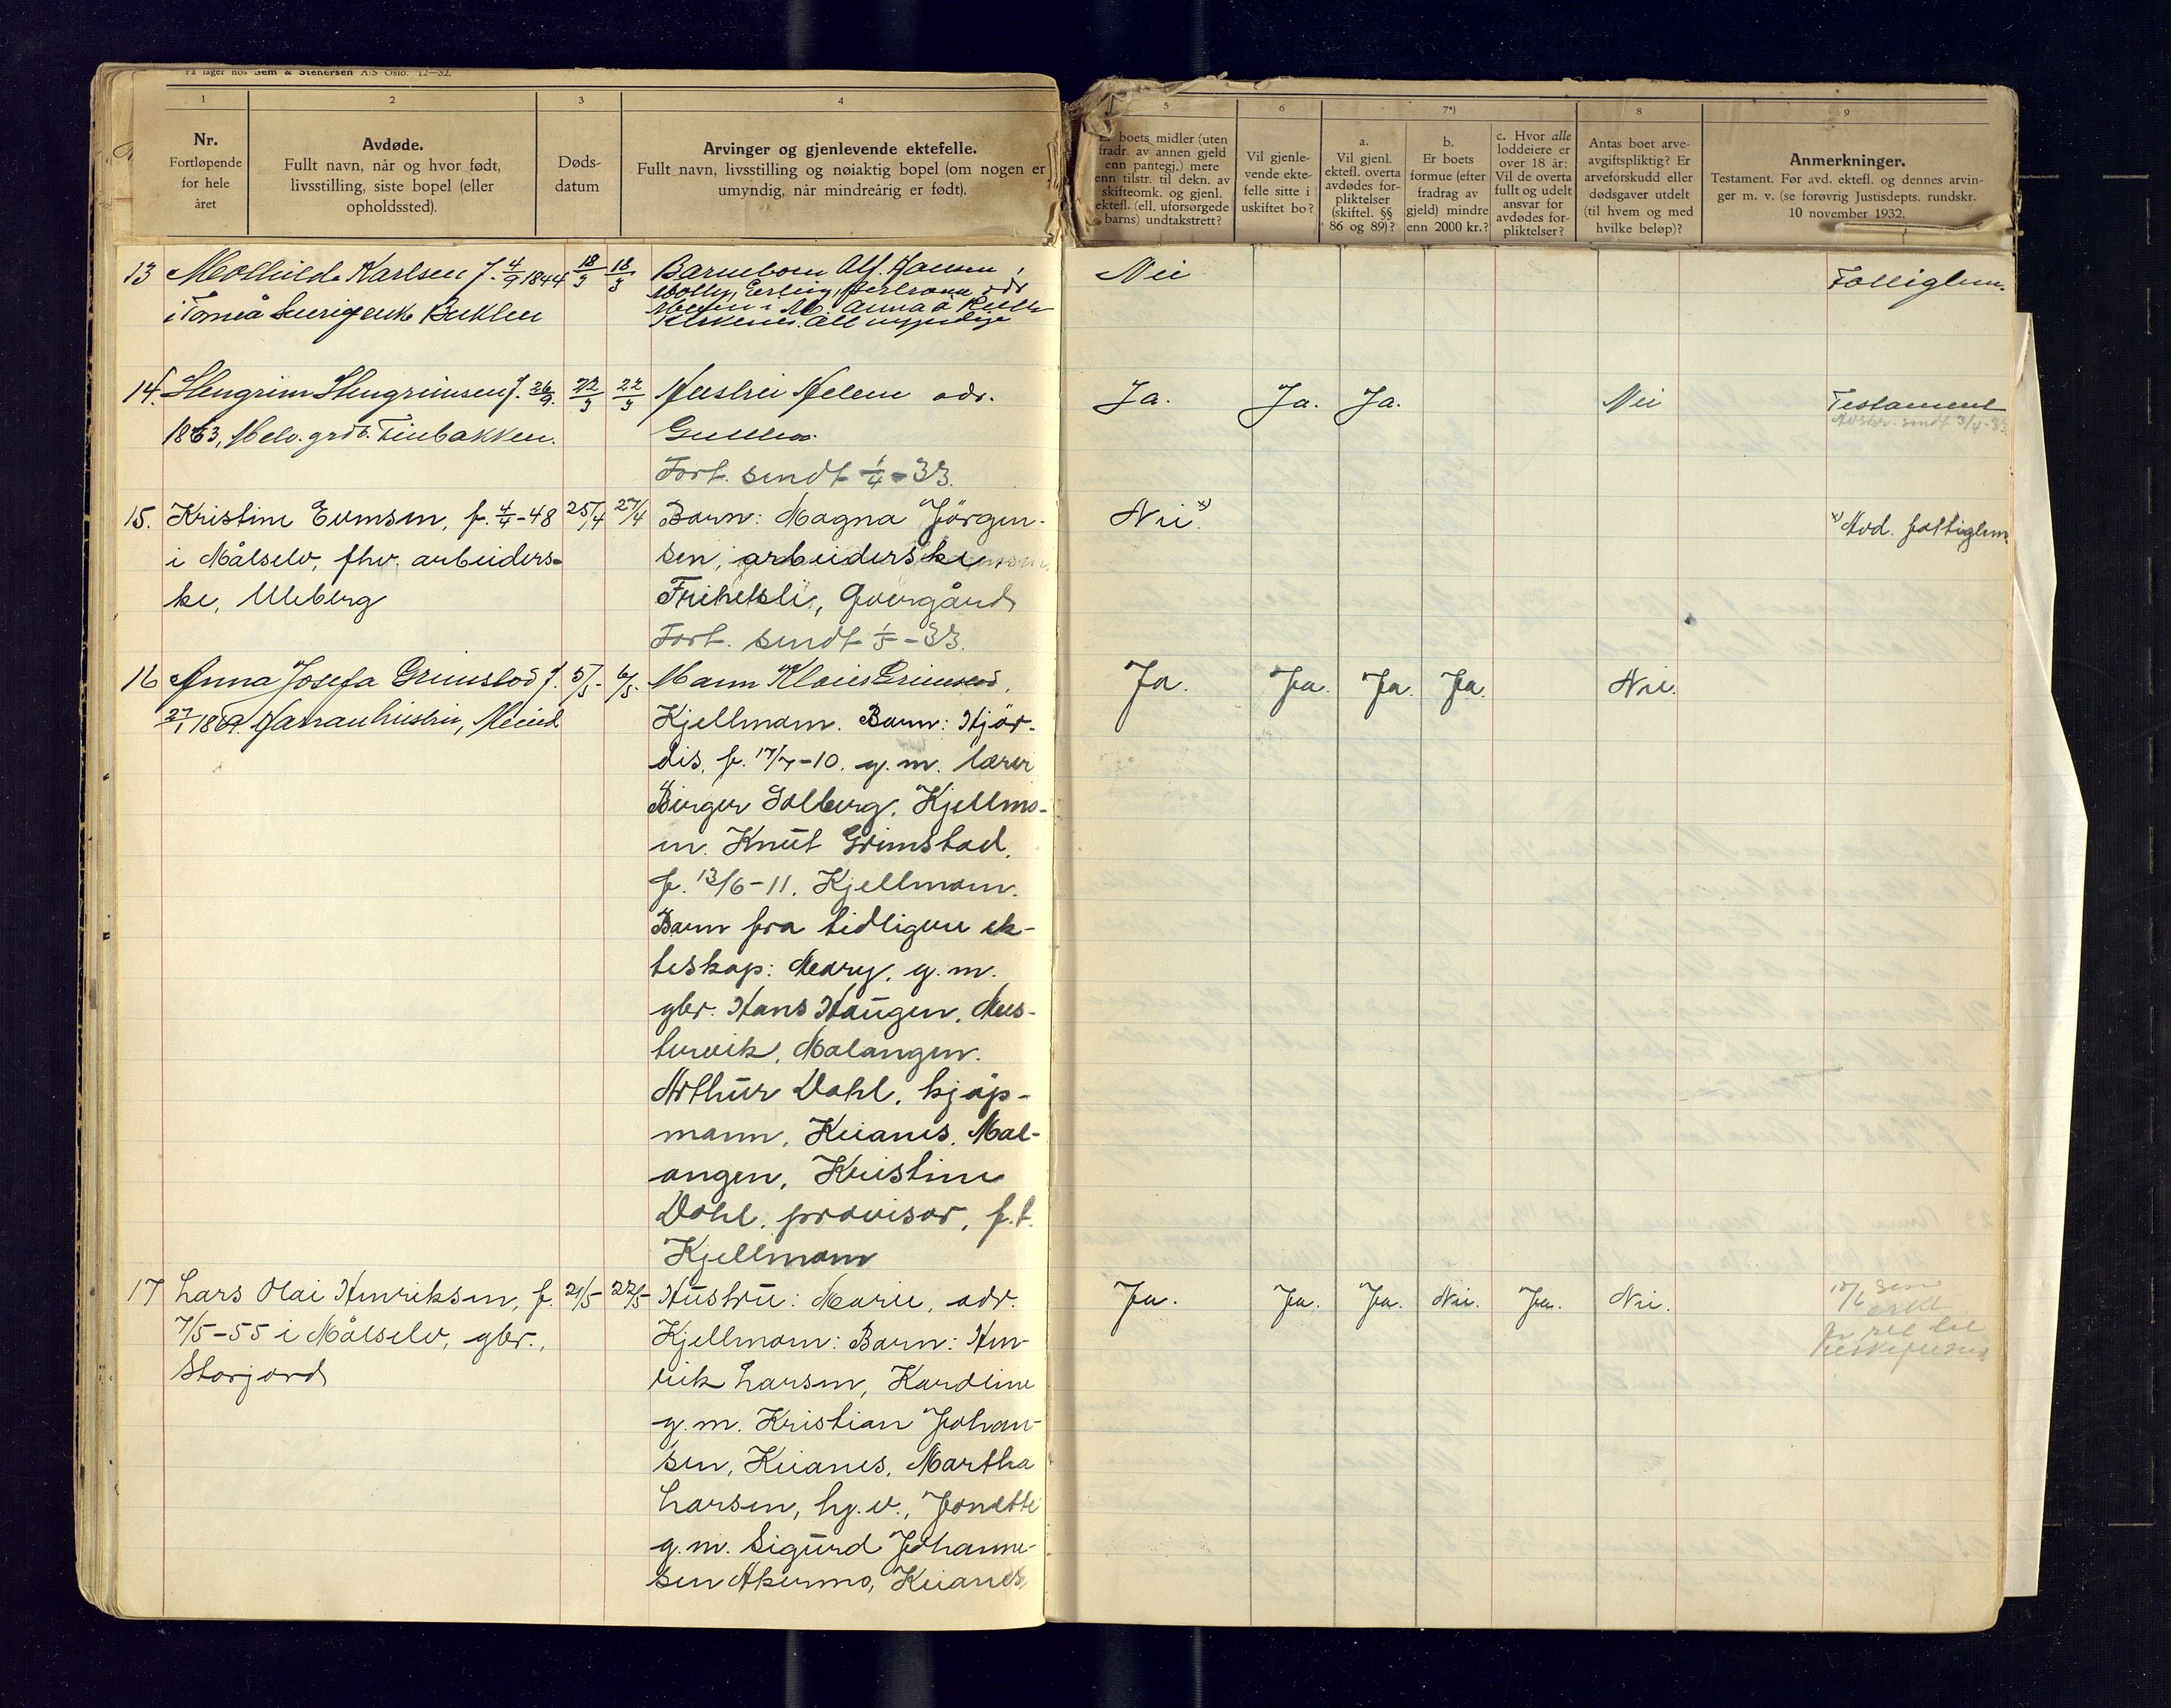 På lager hos Sem & Stenersen A/S Oslo. 12—32.
1
Nr.
Fortløpende
for hele
året
2
Avdøde.
Fullt navn, når og hvor født,
livsstilling, siste bopel (eller
opholdssted).
3
Døds-
datum
4
Arvinger og gjenlevende ektefelle.
Fullt navn, livsstilling og nøiaktig bopel (om nogen er
umyndig, når mindreårig er født).
5
Er boets midler (uten
fradr. av annen gjeld
enn pantegj.) mere
enn tilstr. til dekn. av
skifteomk. og gjenl.
ektef. (ell. uforsørgede
barns) undtakstrett?
6
Vil gjenle-
vende ekte-
felle sitte i
uskiftet bo?
7*)
a.
Vil gjenl.
ektef. overta
avdødes for-
pliktelser
(skiftel. §§
86 og 89)?
b.
Er boets
formue (efter
fradrag av
gjeld) mindre
enn 2000 kr.?
c. Hvor alle
loddeiere er
over 18 år:
Vil de overta
fullt og udelt
ansvar for
avdødes for-
pliktelser?
8
Antas boet arve-
avgiftspliktig? Er
arveforskudd eller
dødsgaver utdelt
(til hvem og med
hvilke beløp)?
9
Anmerkninger.
Testament. Før avd. ektef. og dennes arvin-
ger m. v. (se forøvrig Justisdepts. rundskr.
10 november 1932.
13 Mothilde Karlsen f. 4/9 1844 18/3 18/3 Barnebarn Alf. Hansen, Nei Fattiglem.
i Torneå Sverig enke
Erling, adr
Anna
Kirkenes. Alle umyndige
14. Stengrim Stengrimsen f. 26/9. 22/3 22/3 Hustru Helene adr. Ja. Ja. Ja. Nei Testament
1863, Selv. grdb. Finbakken.
Avskr. sendt 3/4-33
Fort. sendt 1/4-33.
15. Kristine Evensen, f. 4/4-48 25/4 27/4 Barn: Magna Jörgen- Nei. x) x) Avd. fattiglem
i Målselv, fhv. arbeiders-
sen, arbeiderske
ke, Uleberg
Frihetsli, Øvergård
Fort. sendt 1/5-33.
16 Anna Josefa Grimstad f. 5/5- 6/5. Mann Klaus Grimstad, Ja. Ja. Ja. Ja. Nei.
27/1 1869. hustru,
Kjellmom. Barn: Hjör-
dis, f. 17/7-10. g.m. lærer
Birger Solberg, Kjellmo-
m. Knut Grimstad,
f. 13/6-11, Kjellmom.
Barn fra tidligere ek-
teskap: Mary, g.m.
gbr. Hans Haugen, Mes-
tervik, Malangen.
Arthur Dahl, kjöp-
mann, Kvanes, Mal-
angen, Kristine
Dahl, provisor, f.t.
Kjellmom
17 Lars Olai Henriksen, f. 21/5 22/5 Hustru: Marie, adr. Ja. Ja. Ja. Nei. Ja. Nei.
7/5-55 i Målselv, gbr.,
Kjellmom: Barn: Hen-
Storjord
rik Larsen, Karoline
g.m. Kristian Johan-
sen, Kvanes, Martha
Larsen, hg.v., Jonette
g.m. Sigurd Johanne-
sen Akermo, Kvanes,